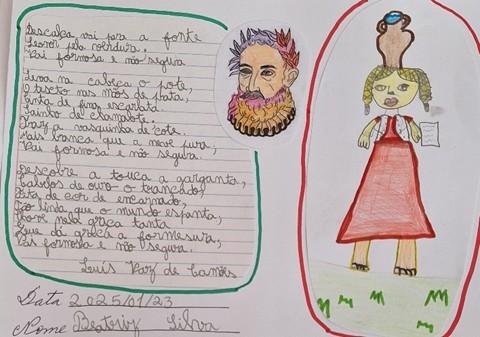 Descalça vai para a fonte
Leonor pela verdura,
Vai formosa e não segura

Leva na cabeça o pote,
O testo nas mãos de prata,
Cinta de fina escarlata
Sainho de chamalote.
Traz a vasquinha de cote.
Mais branca que a neve pura,
Vai formosa e não segura.

Descobre a touca a garganta,
Cabelos de ouro o trançado,
Fita de cor de encarnado,
Tão linda que o mundo espanta,
Chove nela graça tanta
Que dá graça a formosura,
Vai formosa e não segura.

Luís Vaz de Camões
Data 2025/01/23
Nome Beatriz Silva